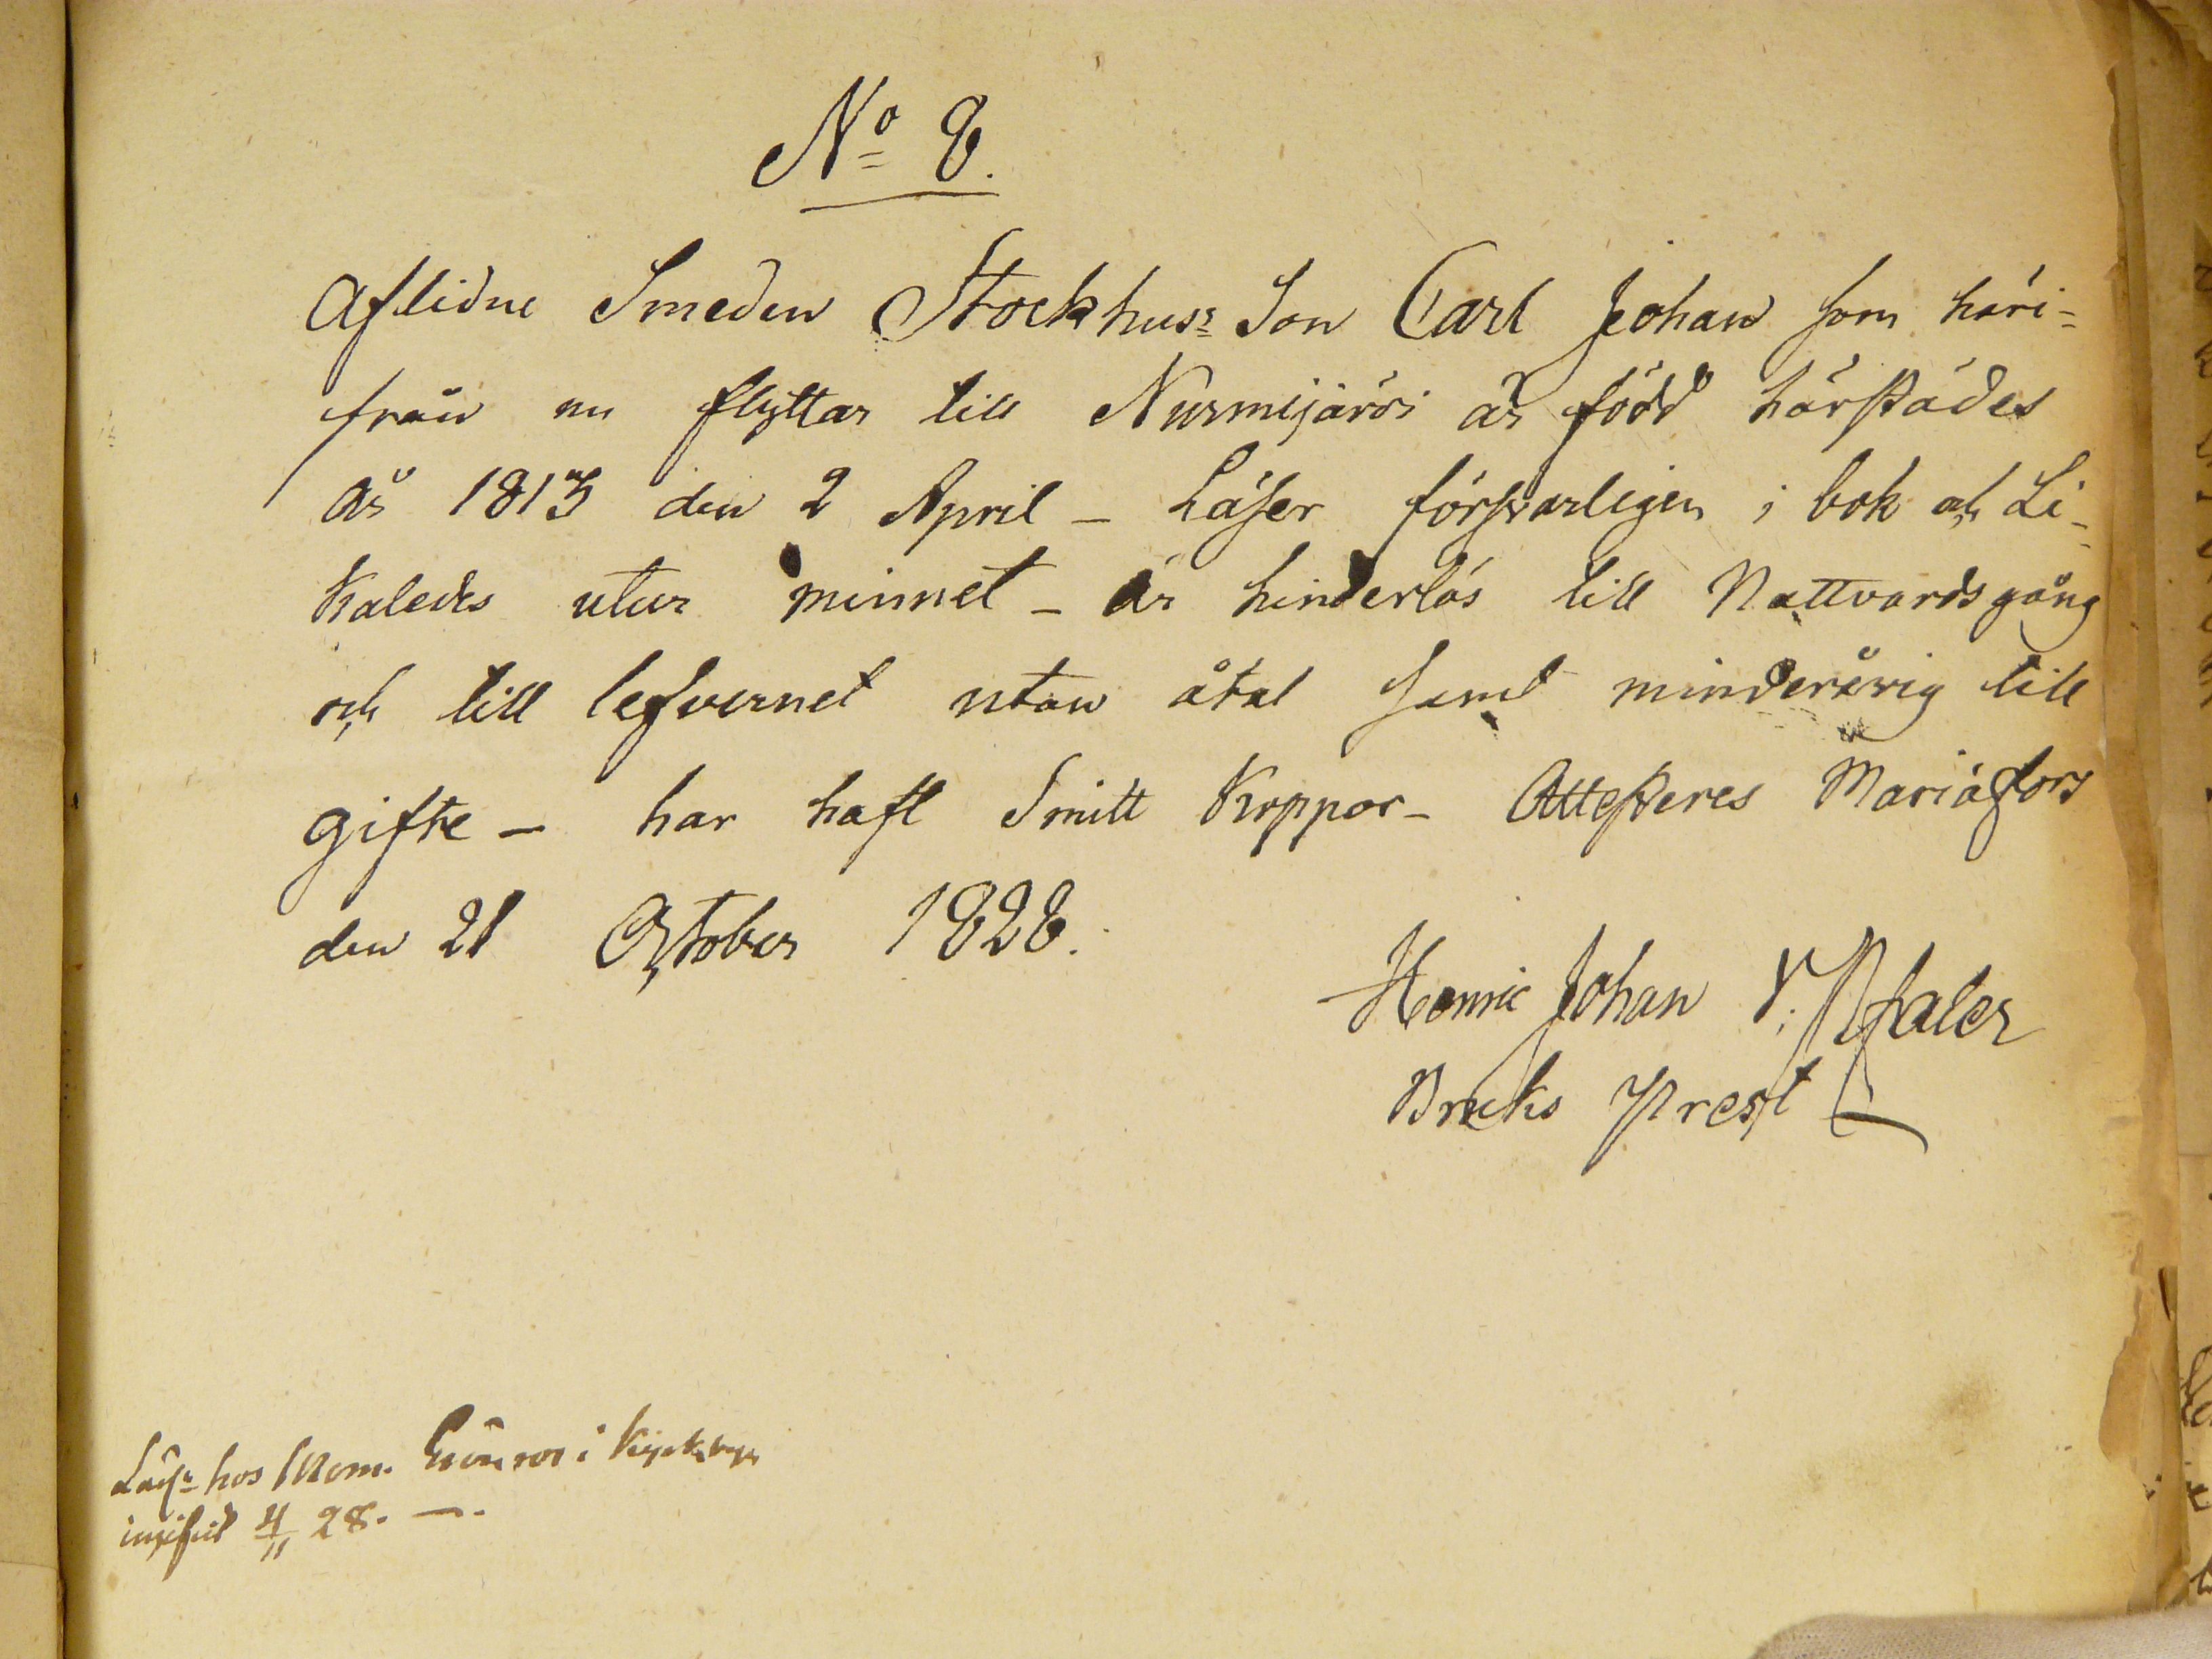 No 8.
Aflidne Smeden Stockhuss Son Carl Johan som häri-
från nu flyttar till Nurmijärvi är född härstädes
år 1813 den 2 April - Läser försvarligen i bok och Li-
kaledes utur minnet - är hinderlös till Nattvardsgång
och till lefvernet utan åtal samt minderårig till
gifte - har haft Smitt Koppor - Attesteres Mariæfors
den 21 October 1828.
Henric Johan V. Pfaler
Bruks Prest
hos i
4/11 28. -